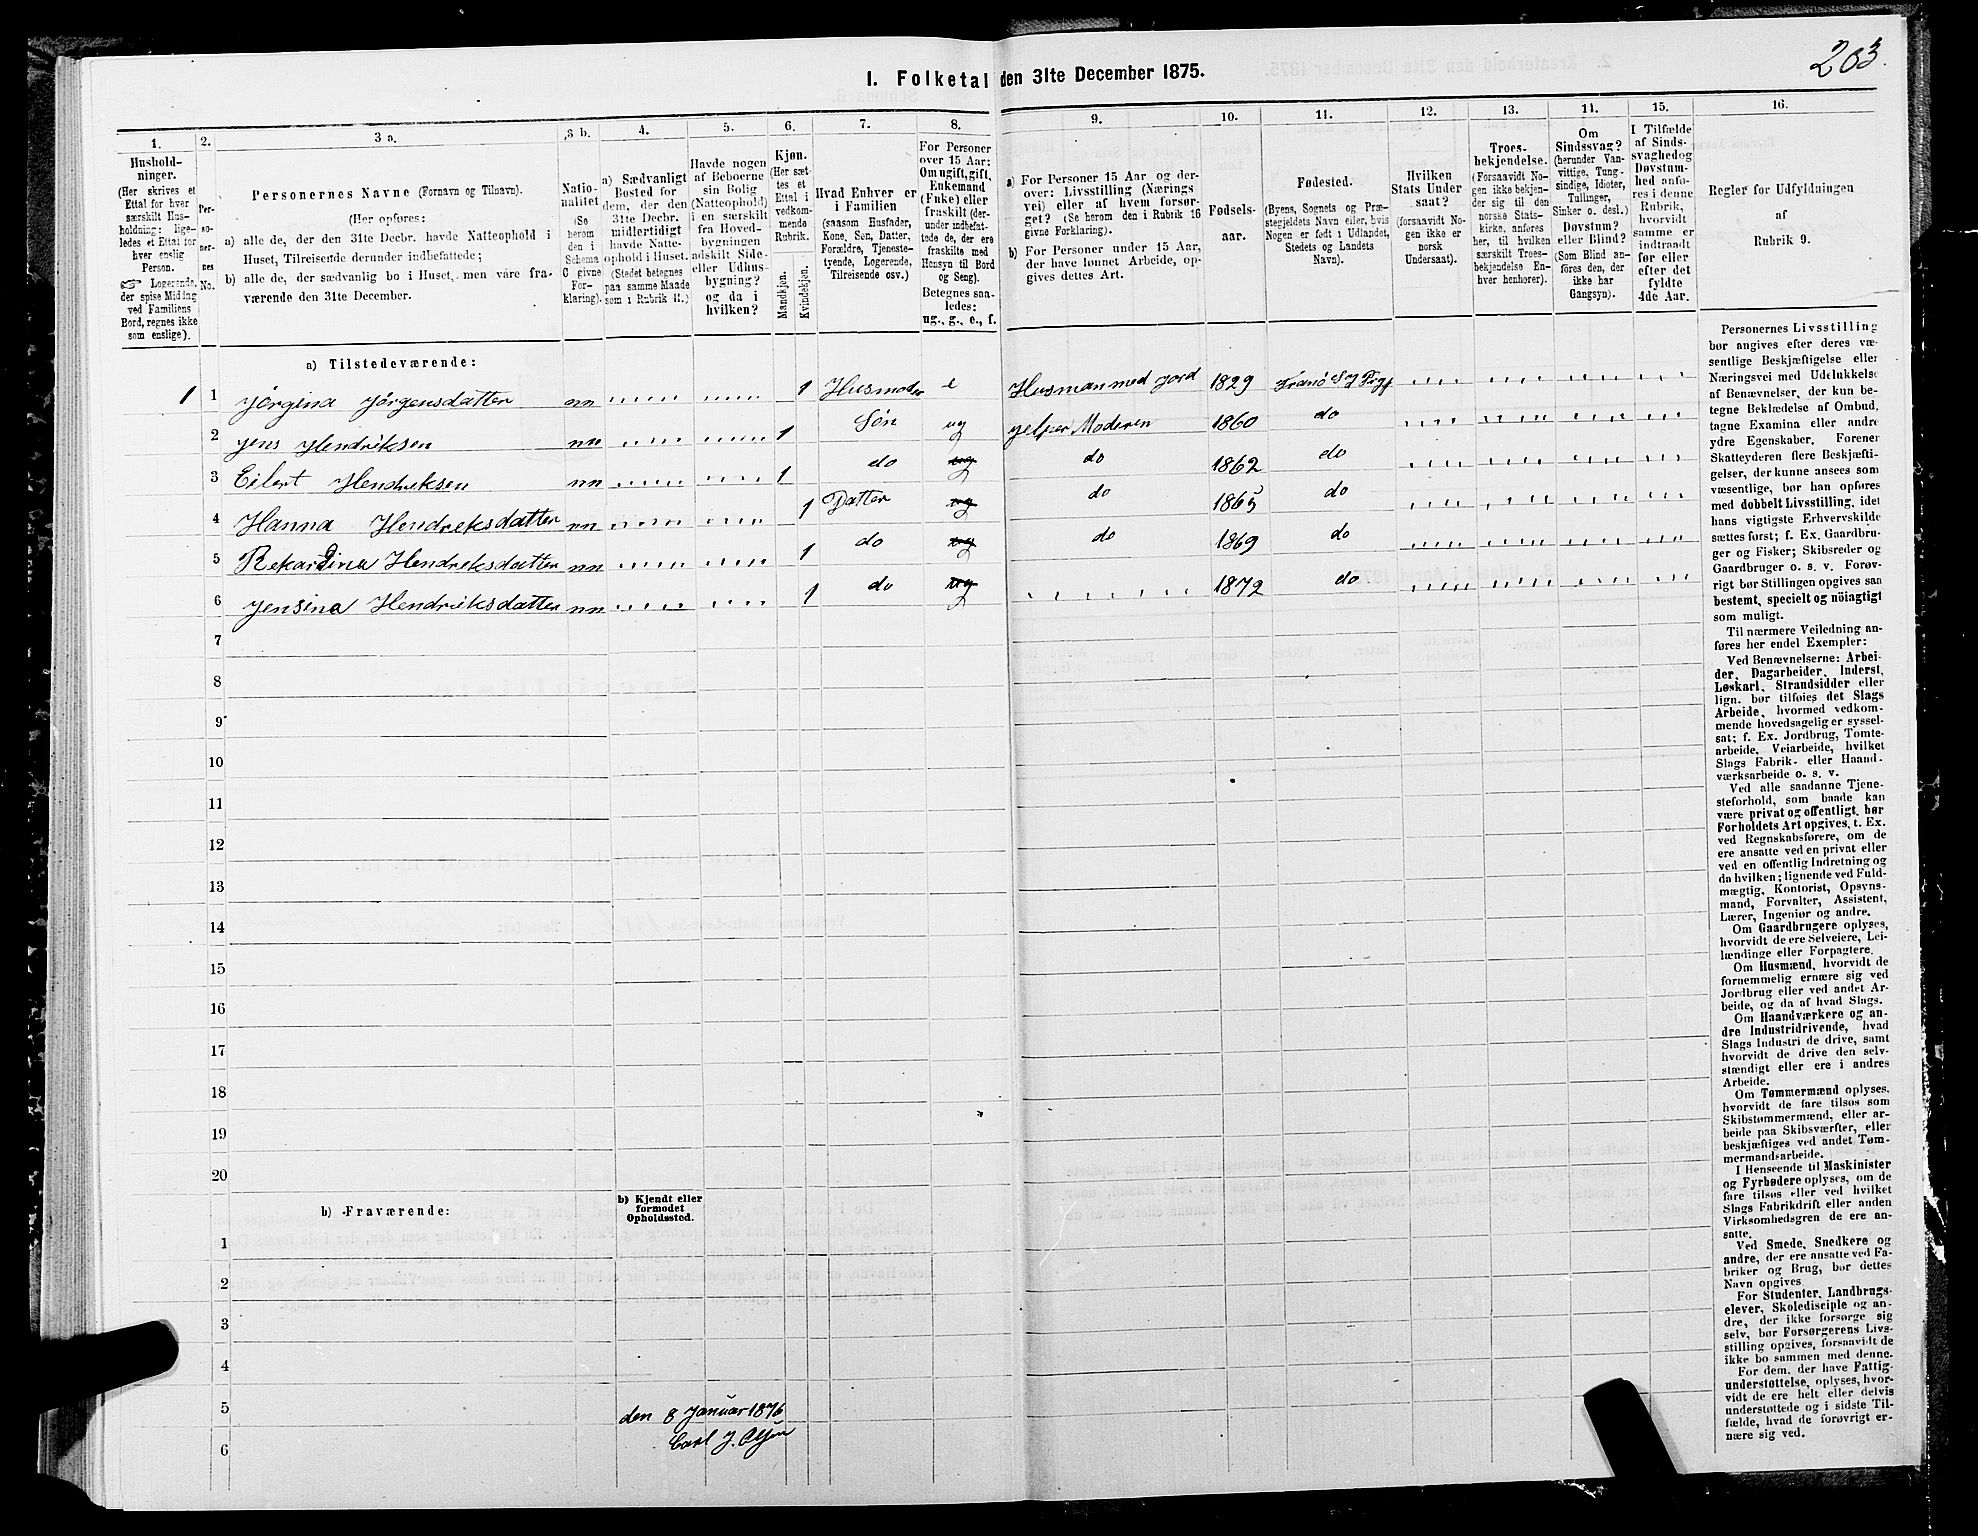 203.
I. Folketal den 31te December 1875.
1. 2. 3 a. 3 b. 4. 5. 6. 7. 8. 9. 10. 11. 12. 13. 14. 15. 16.
Hushold-
ninger.
(Her skrives et
Ettal for hver
særskilt Hus-
holdning: lige-
ledes et Ettal for
hver enslig
Person.
☞ Logerende,
der spise Middag
ved Familiens
Bord, regnes ikke
som enslige).
Per-
so-
ner-
nes
No.
Personernes Navne (Fornavn og Tilnavn).
(Her opføres:
a) alle de, der den 31te Decbr. havde Natteophold i
Huset, Tilreisende derunder indbefattede;
b) alle de, der sædvanlig bo i Huset, men vare fra-
værende den 31te December.
Natio-
nalitet
(Se
herom
den i
Schema
C givne
For-
klaring).
a) Sædvanligt
Bosted for
dem, der den
31te Decbr.
midlertidigt
havde Natte-
ophold i Huset.
(Stedet betegnes
paa samme Maade
som i Rubrik 11.)
Havde nogen
af Beboerne
sin Bolig
(Natteophold)
i en særskilt
fra Hoved-
bygningen
adskilt Side-
eller Udhus-
bygning?
og da i
hvilken?
Kjøn.
(Her sæt-
tes et
Ettal i
vedkom-
mende
Rubrik.
Mandkjøn.
Kvindekjøn.
Hvad Enhver er
i Familien
(saasom Husfader,
Kone, Søn, Datter,
Forældre, Tjeneste-
tyende, Logerende,
Tilreisende osv.)
For Personer
over 15 Aar:
Om ugift, gift,
Enkemand
(Enke) eller
fraskilt (der-
under indbefat-
tede de, der ere
fraskilte med
Hensyn til Bord
og Seng).
Betegnes saa-
ledes:
ug., g., e., f.
a) For Personer 15 Aar og der-
over: Livsstilling (Nærings
vei) eller af hvem forsør-
get? (Se herom den i Rubrik 16
givne Forklaring).
b) For Personer under 15 Aar,
der have lønnet Arbeide, op-
gives dettes Art.
Fødsels-
aar.
Fødested.
(Byens, Sognets og Præ-
stegjeldets Navn eller, hvis
Nogen er født i Udlandet,
Stedets og Landets
Navn).
Hvilken
Stats Under-
saat?
(forsaavidt No-
gen ikke er
norsk
Undersaat).
Troes-
bekjendelse.
(Forsaavidt No-
gen ikke bekjen-
der sig til den
norske Stats-
kirke, anføres
her, til hvilken
særskilt Troes-
bekjendelse En-
hver henhører).
Om
Sindssvag?
(herunder Van-
vittige, Tung-
sindige, Idioter,
Tullinger,
Sinker o. desl.)
Døvstum?
eller Blind?
(Som Blind an-
føres den, der
ikke har
Gangsyn).
I Tilfælde
af Sinds-
svaghed og
Døvstum-
hed anfø-
res i denne
Rubrik,
hvorvidt
samme er
indtraadt
før eller
efter det
fyldte
4de Aar.
Regler for Udfyldningen
af
Rubrik 9.
a) Tilstedeværende:
1 1 Jørgina Jørgensdatter nn 1 Husmoder e Husman med Jord 1829 Tranø S
2 Jens Hendriksen nn 1 Søn ug Jelper Moderen 1860 do
3 Eilert Hendriksen nn 1 do ug do 1862 do
4 Hanna Hendriksdatter nn 1 Datter ug do 1865 do
5 Rekardina Hendriksdatter nn 1 do ug do 1869 do
6 Jensina Hendriksdatter nn 1 do ug 1872 do
7
8
9
10
11
12
13
14
15
16
17
18
19
20
b) Fraværende:
b) Kjendt eller
formodet
Opholdssted.
1
2
3
4
5
6
den 8 Januar 1876
Carl J. Olsen
Personernes Livsstilling
bør angives efter deres væ-
sentlige Beskjæftigelse eller
Næringsvei med Udelukkelse
af Benævnelser, der kun be-
tegne Beklædelse af Ombud,
tagne Examina eller andre
ydre Egenskaber. Forener
Skatteyderen flere Beskjæfti-
gelser, der kunne ansees som
væsentlige, bør han opføres
med dobbelt Livsstilling, idet
hans vigtigste Erhvervskilde
sættes først; f. Ex. Gaardbru-
ger og Fisker; Skibsreder og
Gaardbruger o. s. v. Forøv-
rigt bør Stillingen opgives saa
bestemt, specielt og nöiagtigt
som muligt.
Til nærmere Veiledning an-
føres her endel Exempler:
Ved Benævnelserne: Arbei-
der, Dagarbeider, Inderst,
Løskarl, Strandsidder eller
lign. bør tilføies det Slags
Arbeide, hvormed vedkom-
mende hovedsagelig er syssel-
sat; f. Ex. Jordbrug, Tomte-
arbeide, Veiarbeide, hvilket
Slags Fabrik- eller Haand-
værksarbeide o. s. v.
Ved alle saadanne Tjene-
steforhold, som baade kan
være privat og offentligt, bør
Forholdets Art opgives, t. Ex.
ved Regnskabsførere, om de
ere ansatte ved en privat eller
ved en offentlig Indretning og
da hvilken; lignende ved Fuld-
mægtig, Kontorist, Opsyns-
mand, Forvalter, Assistent,
Lærer, Ingeniør og andre.
Om Gaardbrugere oplyses,
hvorvidt de ere Selveiere, Lei-
lændinge eller Forpagtere.
Om Husmænd, hvorvidt de
fornemmelig ernære sig ved
Jordbrug eller ved andet Ar-
beide, og da af hvad Slags.
Om Haandværkere og an-
dre Industridrivende, hvad
Slags Industri de drive, samt
hvorvidt de drive den selv-
stændigt eller ere i andres
Arbeide.
Om Tømmermænd oplyses,
hvorvidt de fare tilsøs som
Skibstømmermænd, eller ar-
beide paa Skibsværfter, eller
beskjæftiges ved andet Tøm-
mermandsarbeide.
I Henseende til Maskinister
og Fyrbødere oplyses, om de
fare tilsøs eller ved hvilket
Slags Fabrikdrift eller anden
Virksomhedsgren de ere an-
satte.
Ved Smede, Snedkere og
andre, der ere ansatte ved Fa-
briker og Brug, bør dettes
Navn opgives.
For Studenter, Landbrugs-
elever, Skoledisciple og an-
dre, der ikke forsørge sig
selv, bør Forsørgerens Livs-
stilling opgives, forsaavidt de
ikke bo sammen med denne.
For dem, der have Fattig-
understøttelse, oplyses, hvor-
vidt de ere helt eller delvis
understøttede og i sidste Til-
fælde, hvad de forøvrigt er-
nære sig ved.